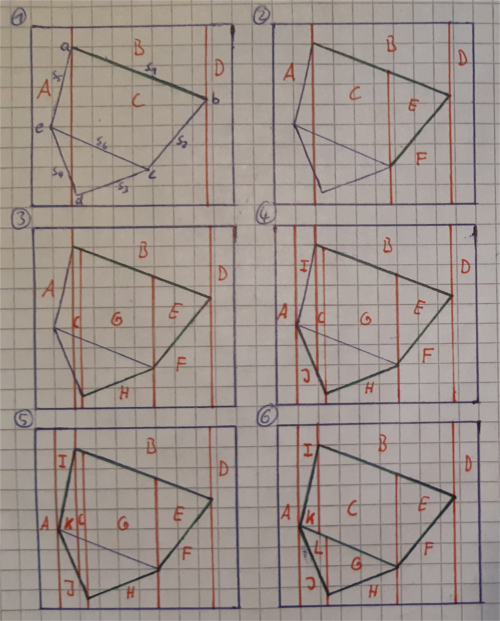 ①
a
B
s₅
s₁
D
A
C
b
e
s₆
s₂
c
s₄
s₃
d
②
B
D
A
C
E
F
③
B
D
A
C
G
E
F
H
④
B
I
D
A
C
G
E
F
J
H
⑤
B
I
D
A
K
C
G
E
F
J
H
⑥
B
I
D
A
K
C
E
L
G
F
J
H